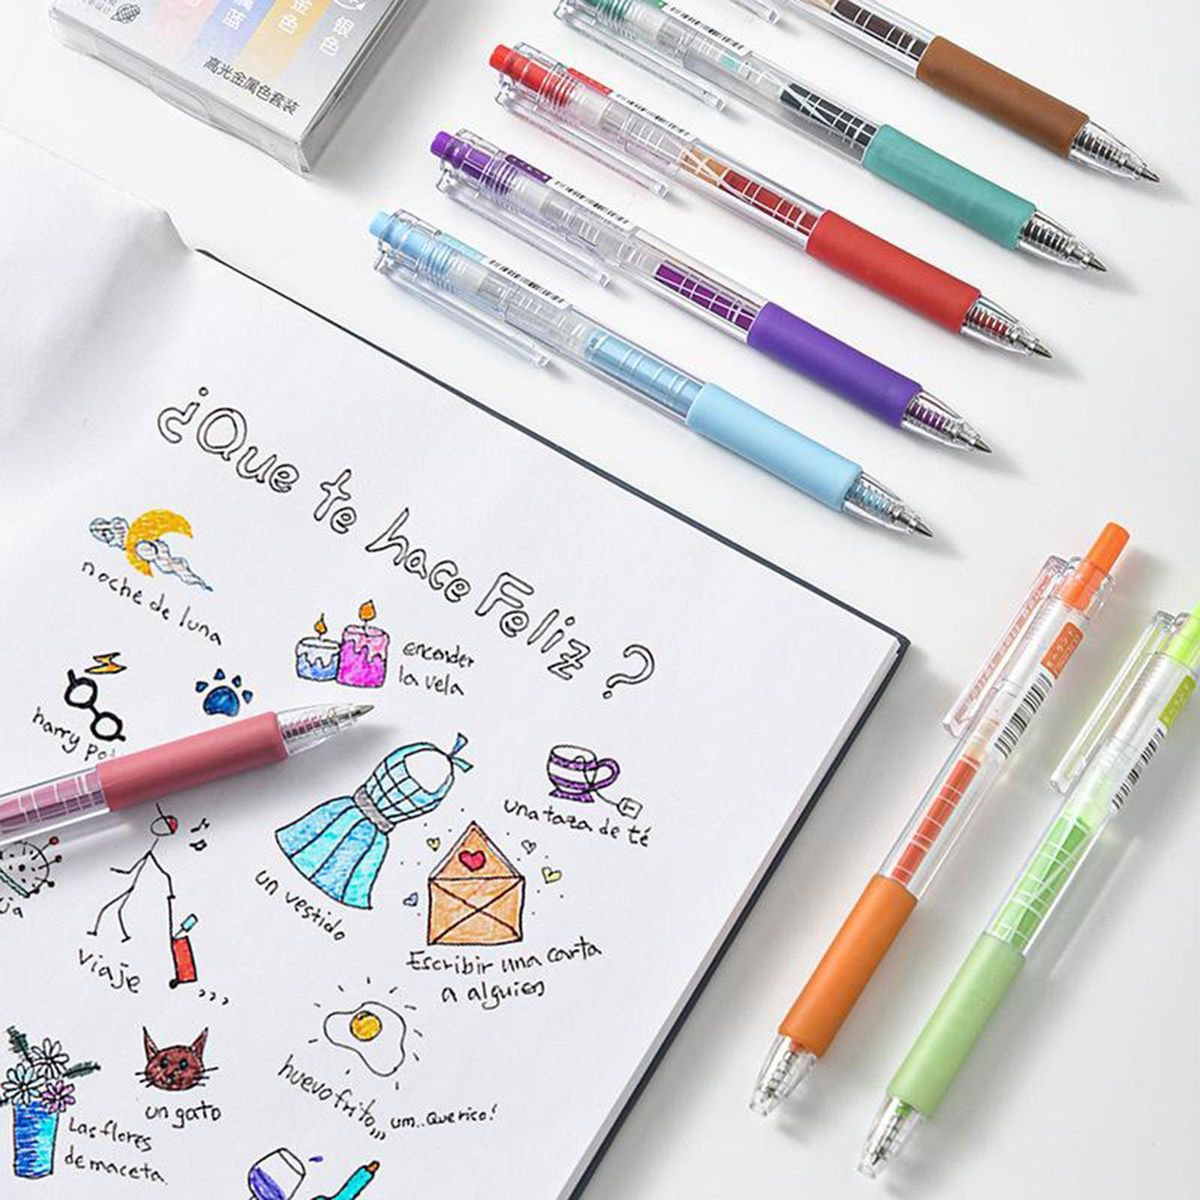 银色
金色
蓝
高光金属色套装
¿Que te hace Feliz?
noche de luna
encender
la vela
harry po
una taza de té
un vestido
Escribir una carta
a alguien
viaje
huevo frito,,, um..Que rico!
un gato
Las flores
de maceta